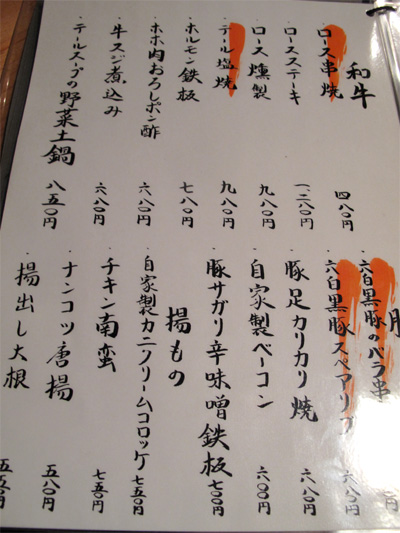 和牛
・ロース串焼 四八〇円
・ロースステーキ 一、二八〇円
・ロース燻製 九八〇円
・テール塩焼 九八〇円
・ホルモン鉄板 七八〇円
・ホホ肉おろしポン酢 六八〇円
・牛スジ煮込み 六八〇円
・テールスープの野菜土鍋 八五〇円
・六白黒豚のバラ串
・六白黒豚スペアリブ 六八〇円
・豚足カリカリ焼 六八〇円
・自家製ベーコン 六〇〇円
・豚サガリ辛味噌鉄板 七〇〇円
揚もの
・自家製カニクリームコロッケ 七五〇円
・チキン南蛮 七五〇円
・ナンコツ唐揚 五八〇円
・揚出し大根 五五〇円